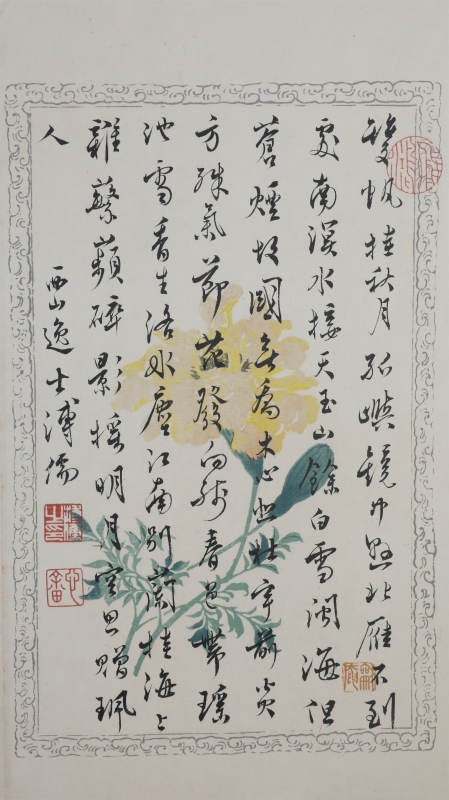 雙帆挂秋月孤嶼鏡中懸北雁不到
處南溟水接天玉山餘白雪閩海但
蒼煙故國無喬木心悲杜宇前炎
方殊氣節花發向殘春色帶瑤
池雪香生洛水塵江南別蘭桂海上
雜蘩蘋碎影搖明月空思贈珮
人
西山逸士溥儒
心畬